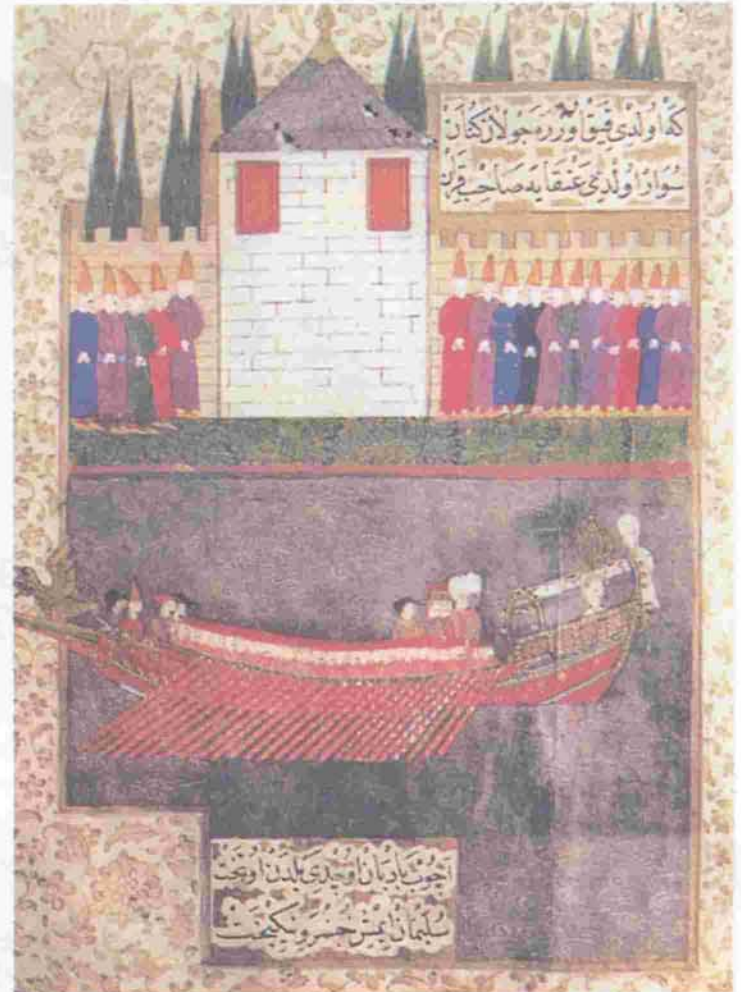 که اولدی قیق اوزره جولان کنان
سوار اولدی عنقایه صاحب قران
آچوب بادبان اوچدی یلدن او تخت
سلیمان ایمش خسرو نیکبخت